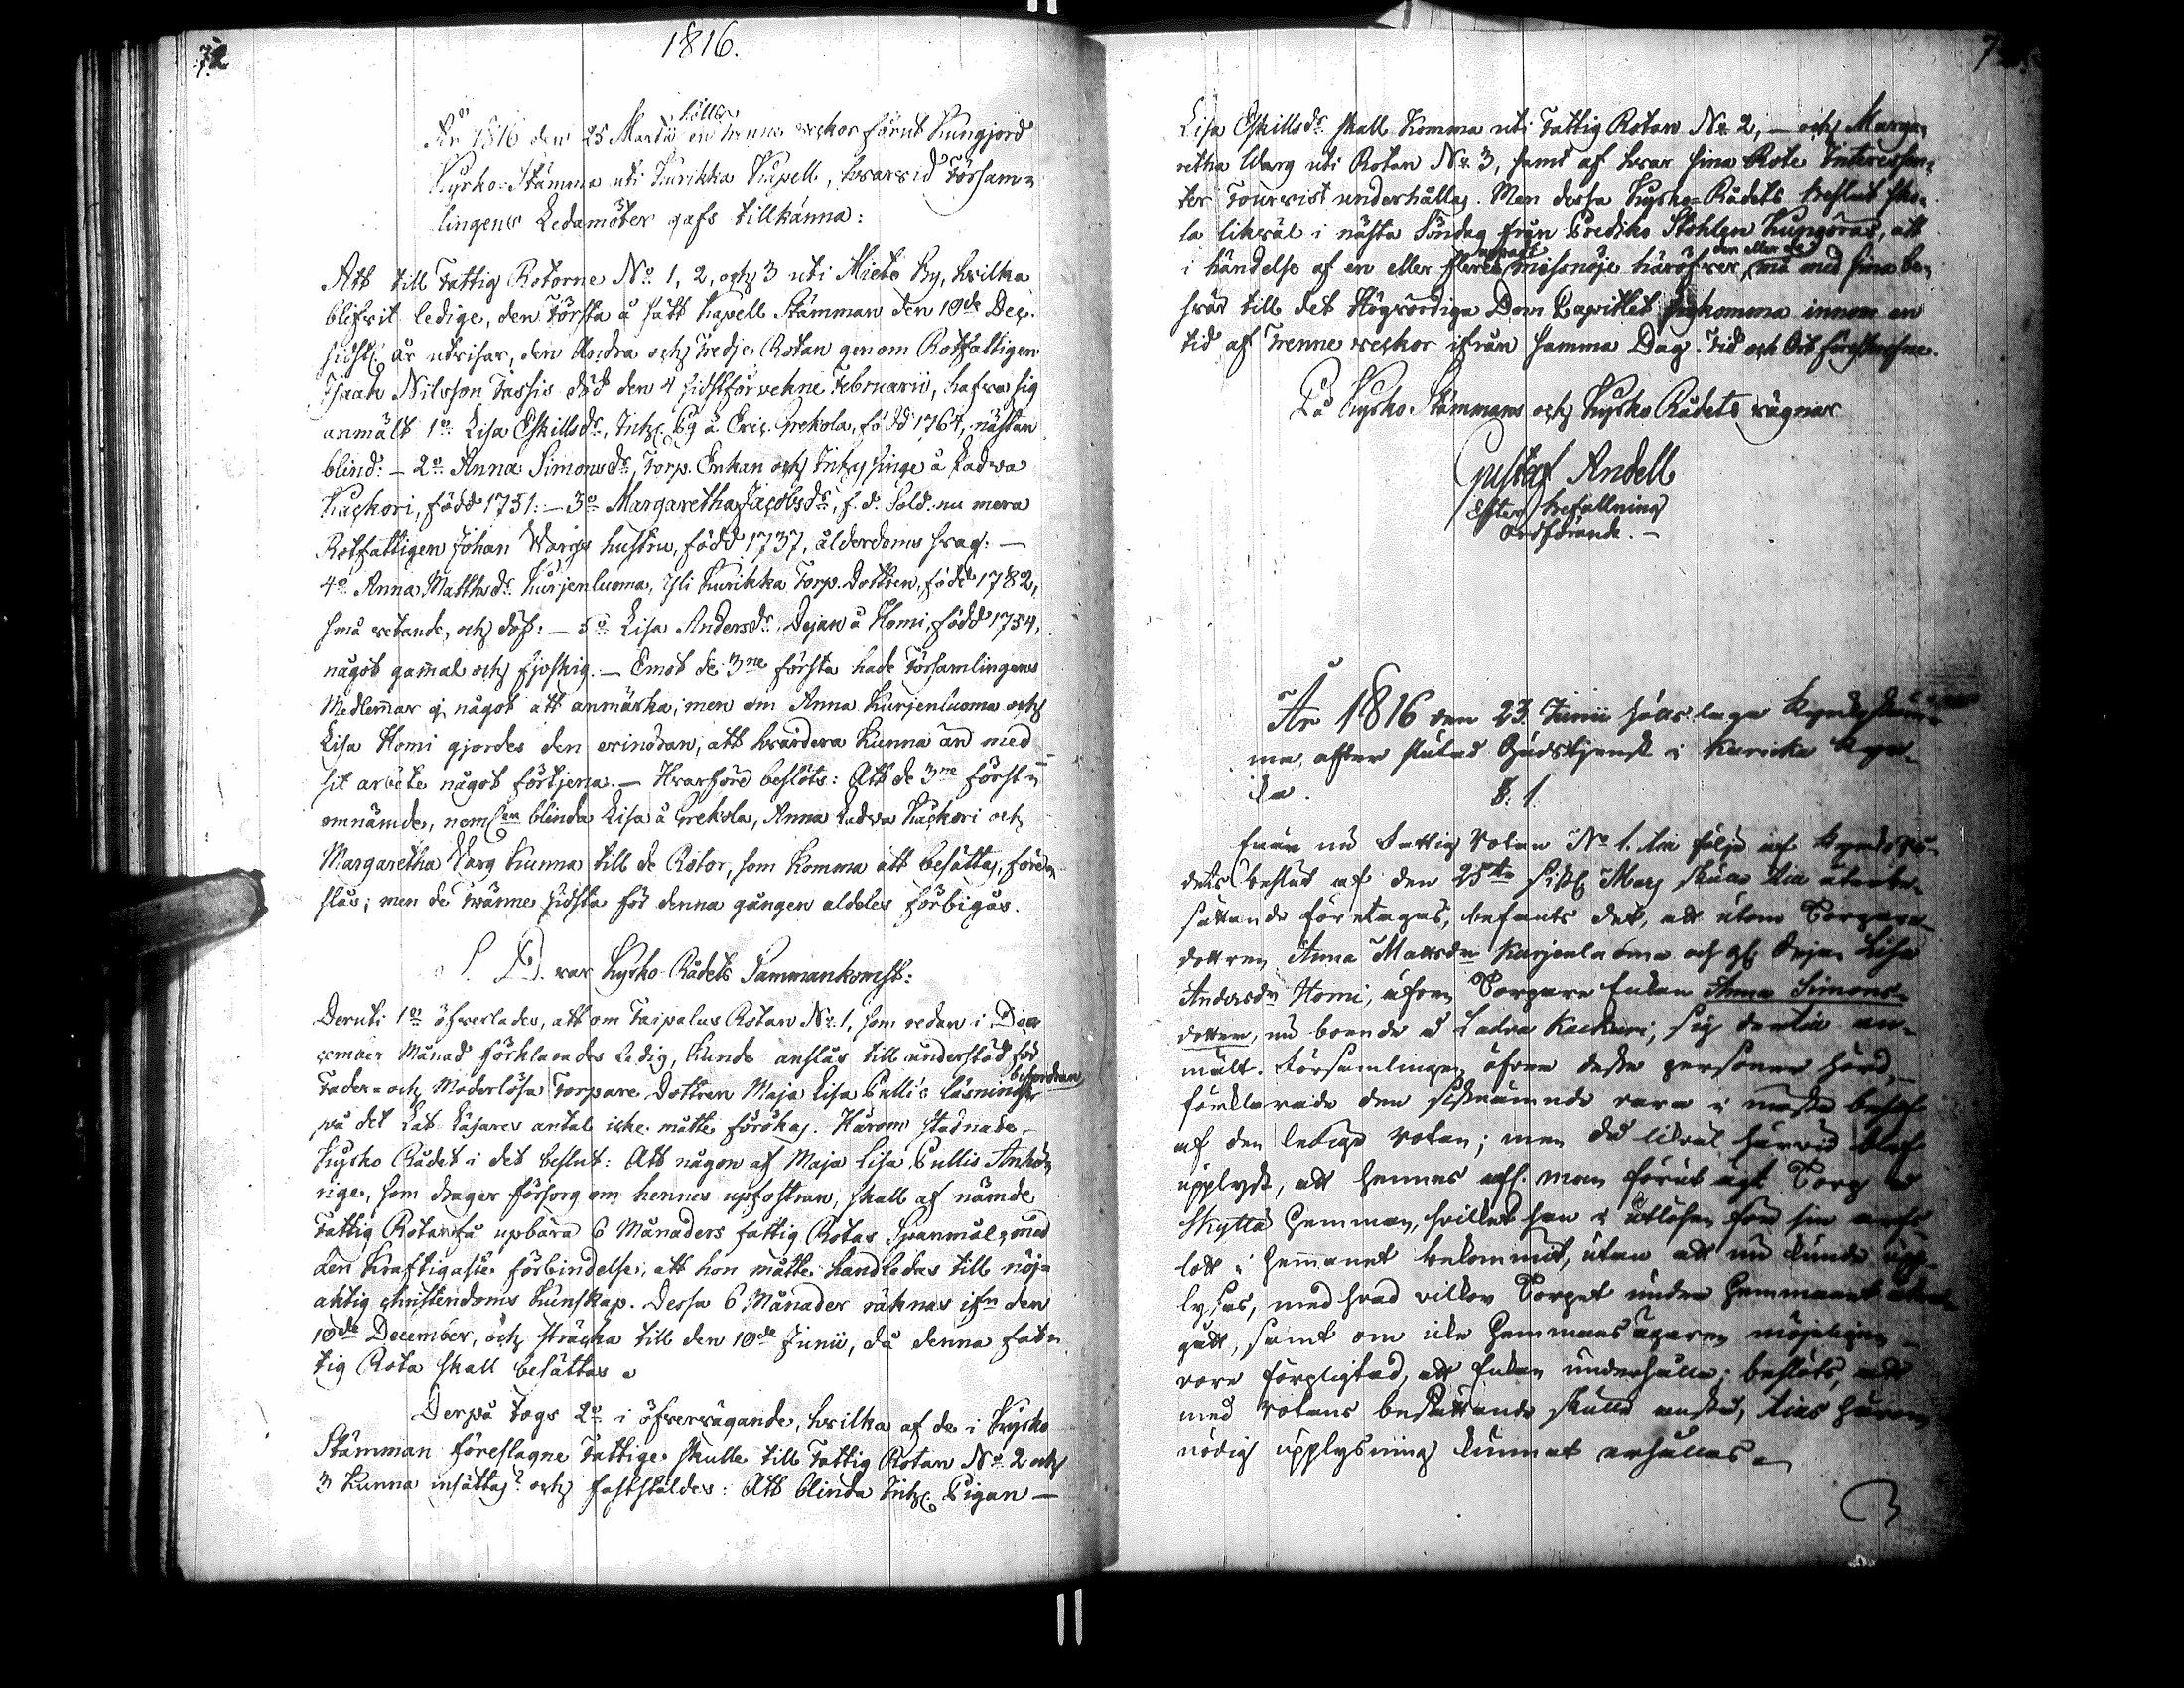 72
1816.
hölls
År 1816 den 25 Martii en trenne veckor förut kungjord
Kyrko-Stämma uti Kurikka Kapell, hvarvid Försam=
lingens Ledamöter gafs tillkänna:
Att till Fattig Rotorne No 1, 2, och 3 uti Mieto By, hvilka
blifvit ledige, den Första å sätt Kapell Stämman den 10de Dec.
sidstl. år utvisar, den Andra och Tredje Rotan genom Rotfattigen
Isaak Nilsson Tassis död den 4 sidstförvekne Februarii, hafva sig
anmält 1o Lisa Eskillsdr, Inh. Pig å Eric Grekola, född 1764, nästan
blind: – 2o Anna Simonsdr, Torp. Enkan och Inhysinge å Ladva
Kackori, född 1751: – 3o Margaretha Jacobsdr, f. d. Sold. nu mera
Rotfattigen Johan Wargs hustru, född 1737, ålderdoms svag: –
4o Anna Mattsdr Kurjenluoma, Yli Kurikka Torp. Dottren, född 1782,
små vetande, och döf: – 5o Lisa Andersdr, Dejan å Homi, född 1754,
något gammal och sjoskig. – Emot de 3ne första hade Församlingens
Medlemmar ej något att anmärka; men om Anna Kurjenluoma och
Lisa Homi gjordes den erindran, att hvardera kunna än med
sit arbete något förtjena. – Hvarföre beslöts: Att de 3ne först=
omnämde, neml:en blinda Lisa å Grekola, Anna Ladva Kackori och
Margaretha Warg kunna till de Rotor, som komma att besättas, före=
slås; men de tvänne sidsta för denna gången aldeles förbigås.
S. D. var Kyrko-Rådets Sammankomst:
Deruti 1o öfverlades, att om Taipalus Rotan No 1, som redan i De=
cember Månad förklarades Ledig, kunde anslås till understöd för
Fader- och Moderlösa Torpare Dottren Maja Lisa Pullis läsnings
befordran
på det Lat Läsares antal icke måtte förökas. Härom stadnade
Kyrko Rådet i det beslut: Att någon af Maja Lisa Pullis Anhö=
rige, som drager försorg om hennes uppfostran, skall af nämde
Fattig Rotan få upbära 6 Månaders fattig Rotas Spanmål, med
den kraftigaste förbindelse, att hon måtte handledas till nöj=
aktig christendoms kunskap. Dessa 6 Månader räknas ifrn den
10de December, och sträcka till den 10de Junii, då denna fat=
tig Rota skall besättas.
Derpå togs 2o i öfvervägande, hvilka af de i Kyrko
Stämman föreslagne Fattige skulle till Fattig Rotan No 2 och
3 kunna insättas? och fastställdes: Att blinda Inh. Pigan –
Lisa Eskillsdr skall komma uti Fattig Rotan No 2, – och Marga=
retha Warg uti Rotan No 3, samt af hvar sina Rote Interessen=
ter Tourvist underhållas. Men dessa Kyrko-Rådets beslut sko=
la likväl i nästa Söndag från Prediko Stohlen kungöras, att
i händelse af en eller fleres missnöje häröfver, må med sina be=
den eller de
svär till det Högvördiga Dom Capitlet inkomma innom en
tid af Trenne veckor ifrån samma Dag. Tid och Ort föreskrefne.
På Kyrko-Stämmans och Kyrko Rådets vägnar
Gustaf Andell
Efter befallning
Ordförande. –
År 1816 den 23. Junii hölls laga Kyrkostäm=
ma, efter slutad Gudstjenst i Kurikka Kyr=
ka.
§. 1.
Enär nu Fattig Rotan No 1. til följe af Kyrkorå=
dets beslut af den 25te sistl. Mars skulle till återbe=
sättande företagas, befants det, att utom Torpare
dottren Anna Mattsdr Kurjenluoma och gl. Dejan Lisa
Andersdr Homi, äfven Torpare Enkan Anna Simons=
dotter, nu boende å Ladva Kackuri, sig dertill an=
mält. Församlingen öfver dessa personer hörd,
förklarade den sistnämnde vara i mesta behof
af den lediga rotan; men då likväl härvid blef
upplyst, att hennes afl. man förut ägt Torp å
Skyttä hemman, hvilket han i utlösen för sin arfs
lott i hemmanet bekommit, utan att nu kunde upp=
lysas, med hvad villkor Torpet under hemmanet
gått, samt om icke hemmans ägaren möjeligen
vore förpligtad, att Enkan underhålla; beslöts, att
med rotans besättande skulle anstå, tills härom
nödig upplysning kunnat erhållas.